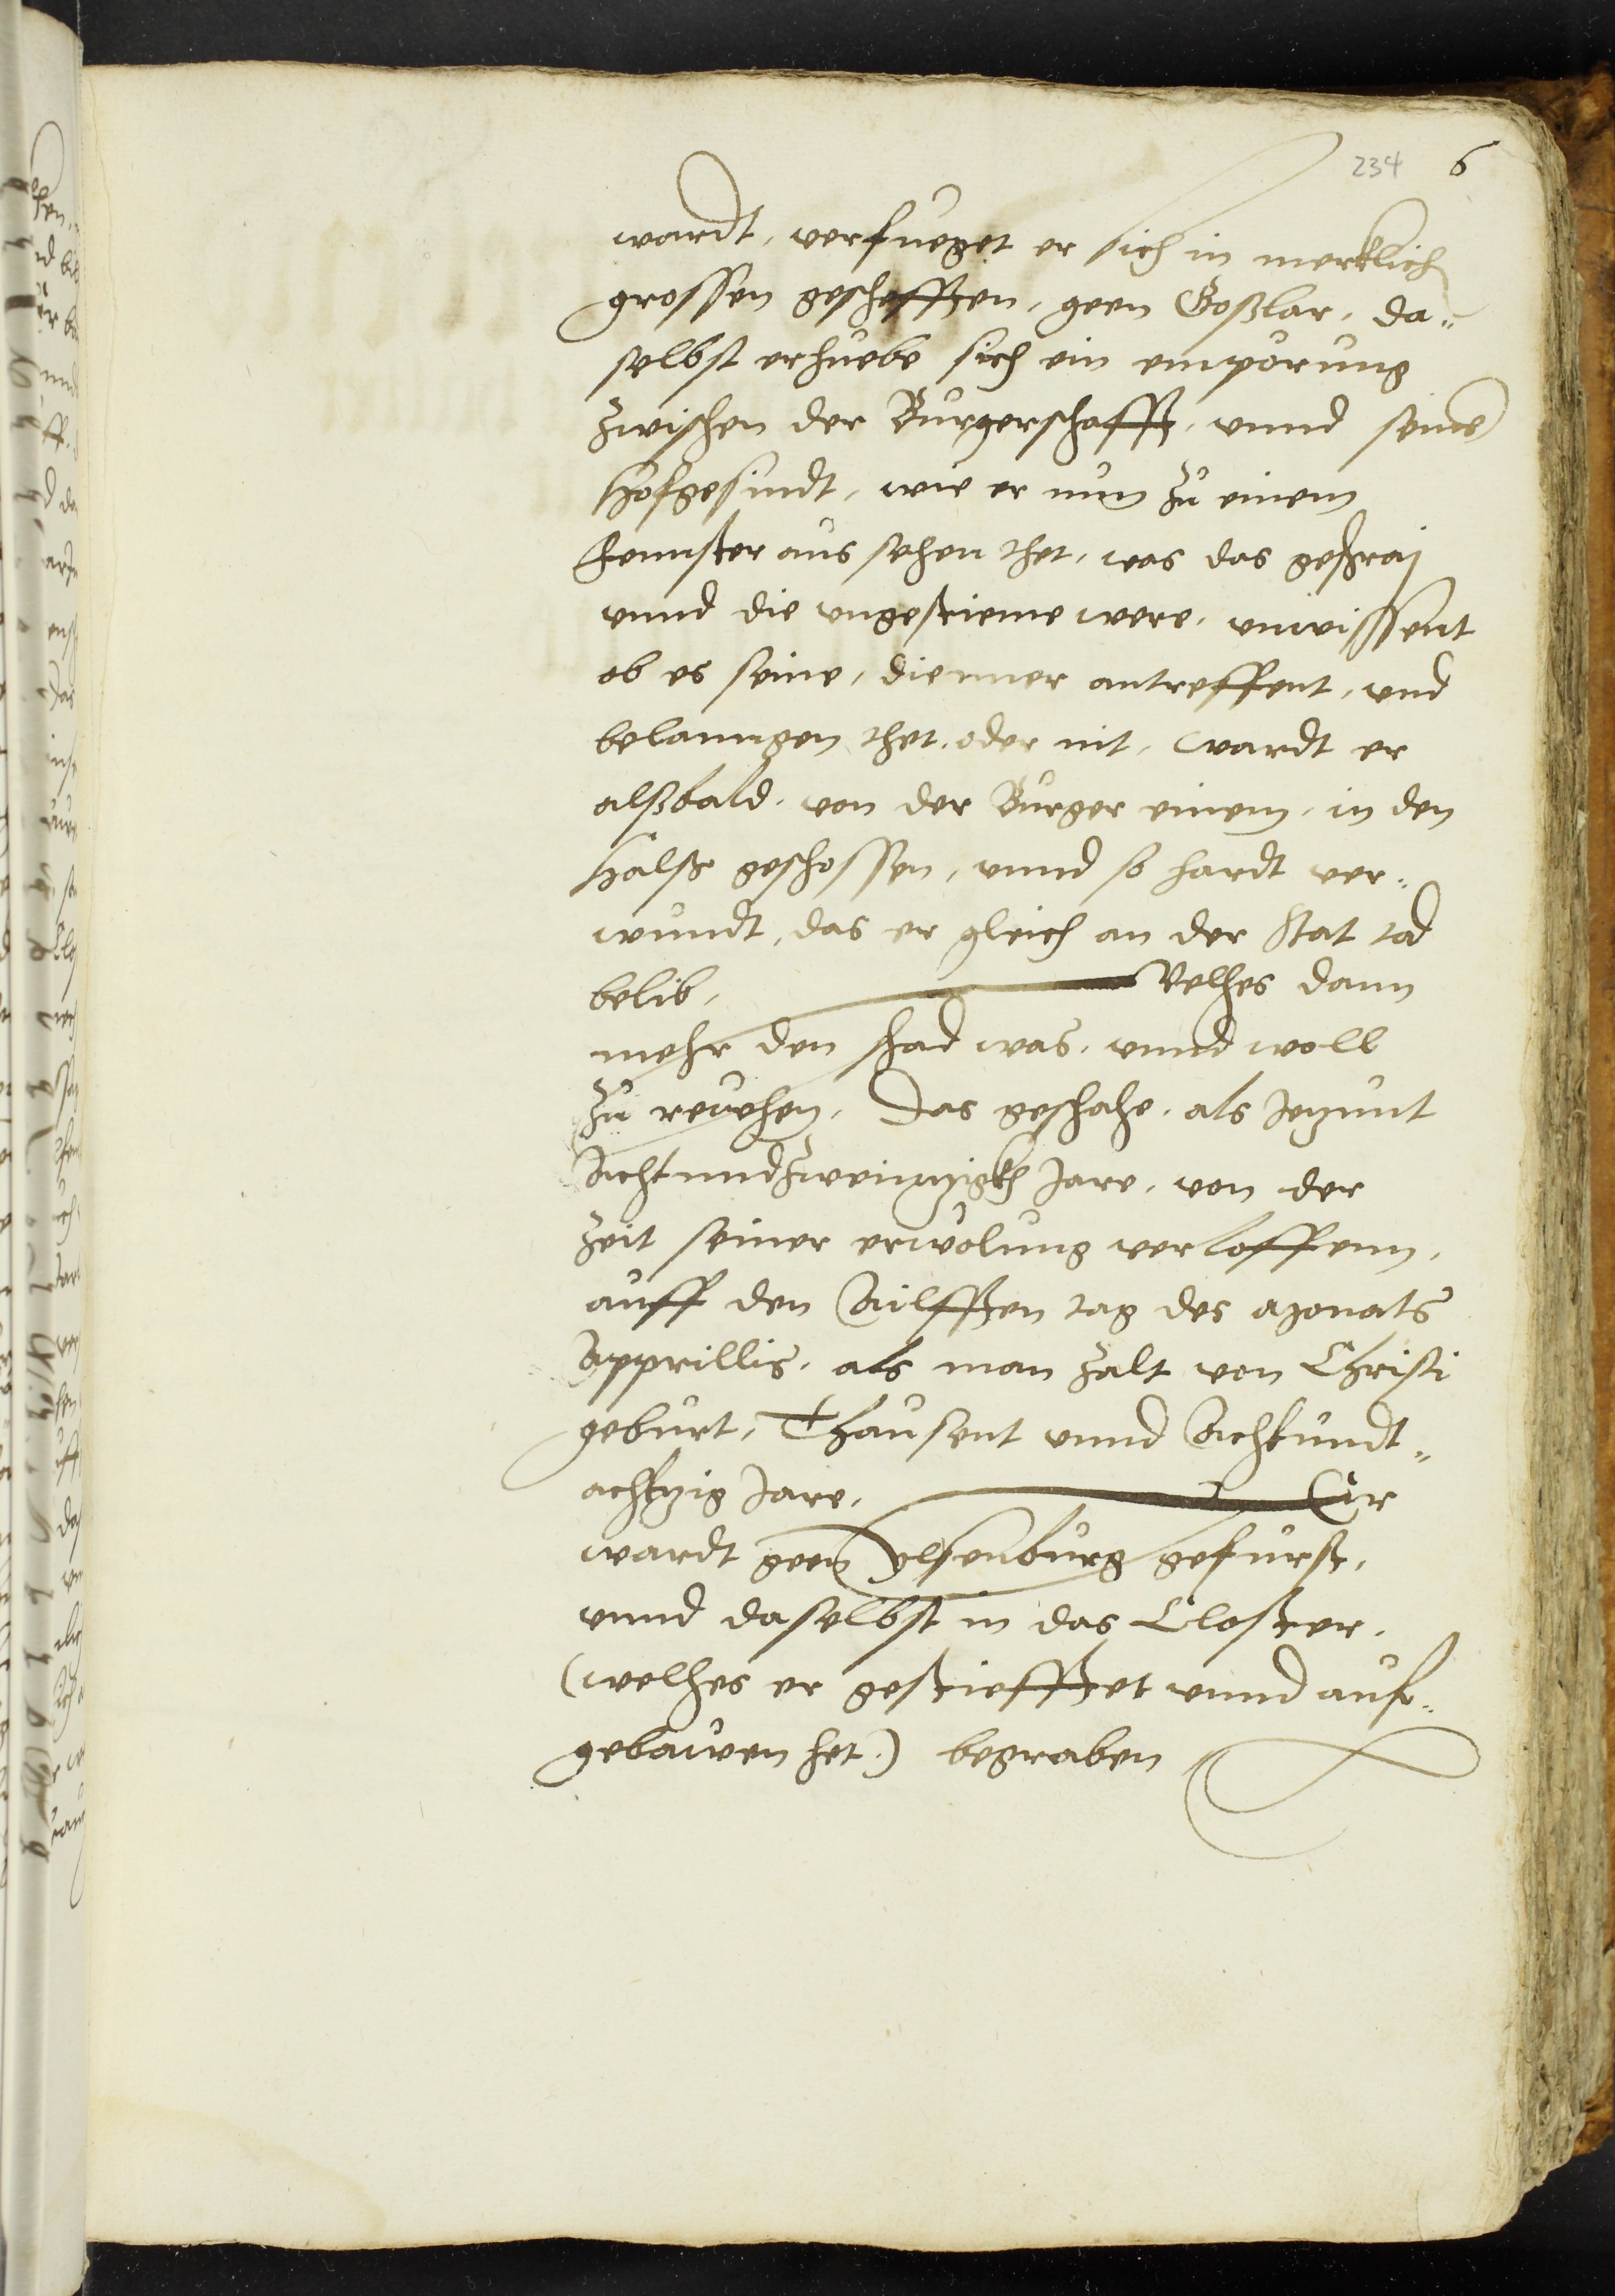 234 6
wardt, verfueget er sich in merklich
grossen geschefften, geen Goßlar, da„
selbst erhuebe sich ein empörung
zwischen der Burgerschafft, unnd seine
Hofgesindt, wie er nun zu einem
Fennster aus sehen thet, was das geschraj
unnd die ungestieme were, unwissent
ob es seine, dienner antreffent, und
belanngen thet, oder nit, wardt er
alßbald, von der Burger einem, in den
Halß geschossen, unnd so hardt ver„
wundt, das er gleich an der Stat tod
belib, Velhes dann
mehr den schad was, unnd woll
zu reuehen, Das geschahe, als Jezunt
Achtundzweinzigkh Jare, von der
Zeit seiner erwölung verloffenn,
auff den Ailfften tag des Monats
Apprillis, als man zalt von Christi
geburt, Thausent unnd Achtundt„
achtzig Jare, Er
wardt geen Ylsenburg gefürt,
unnd daselbst in das Closter,
(welhes er gestiefftet unnd auf„
gebauwen het) begraben